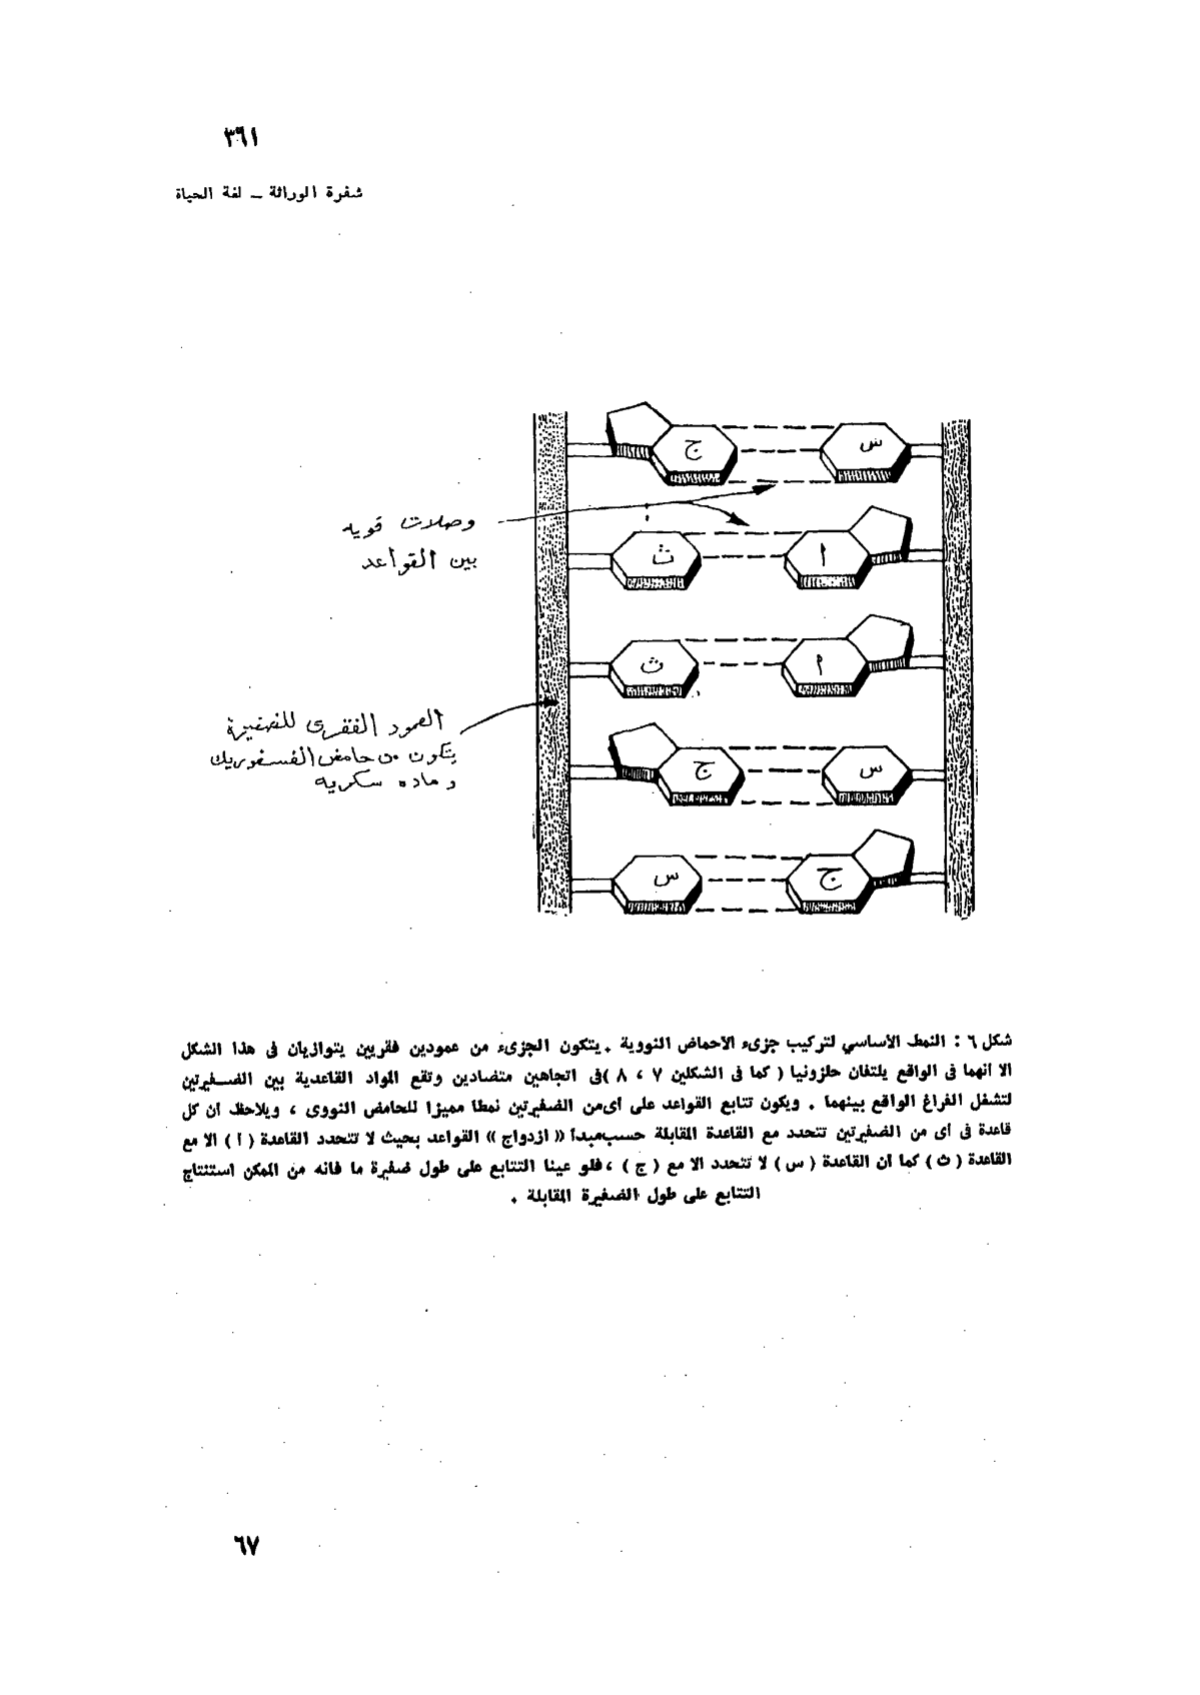 ٣٦١
شفرة الوراثة ــ لغة الحياة
ج س
وصلات قويه
بين القواعد
ث ا
ث ا
العمود الفقرى للضفيرة
يتكون من حامض الفسفوريك
و ماده سكريه
ج س
س ج
شكل ٦ : النمط الاساسي لتركيب جزىء الاحماض النووية . يتكون الجزىء من عمودين فقريين يتوازيان فى هذا الشكل
الا انهما فى الواقع يلتفان حلزونيا ( كما فى الشكلين ٧ ، ٨ )فى اتجاهين متضادين وتقع المواد القاعدية بين الضـفيرتين
لتشغل الفراغ الواقع بينهما . ويكون تتابع القواعد على أى من الضفيرتين نمطا مميزا للحامض النووى ، ويلاحظ أن كل
قاعدة فى أى من الضفيرتين تتحدد مع القاعدة المقابلة حسب مبدأ « ازدواج » القواعد بحيث لا تتحدد القاعدة ( أ ) الا مع
القاعدة ( ث ) كما أن القاعدة ( س ) لا تتحدد الا مع ( ج ) ، فلو عينا التتابع على طول ضفيرة ما فانه من الممكن استنتاج
التتابع على طول الضفيرة المقابلة .
٦٧